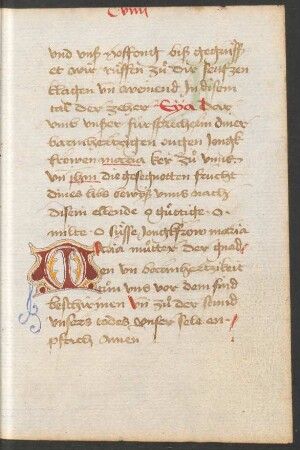 Cviiii
vnd vnß hoffnung biß gegrüsß
et wir rüffen zů dir seufzen
klagen vn weinend In disem
tal der zeher Eya dar
vmb vnßer fürsprecherin diner
barmhertzigen ougen Jungk
frowen maria ker zů vnns
vn ihm die gesegnoten frucht
dines libs bewyß vnns nach
disem ellende O gütige O
milte O süsse Jungkfrow maria
Maria můtter der gnad
en vn barmhertzikeit
tům vns vor dem find
beschirmen vn zů der stund
vnsers todes vnser sele en-
pfäch Amen